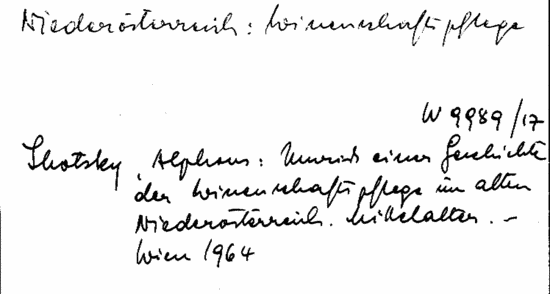 Niederösterreich: Wissenschaftspflege
W 9989/17
Lhotsky, Alphons: Umriss einer Geschichte
der Wissenschaftspflege im alten
Niederösterreich. Mittelalter. –
Wien 1964